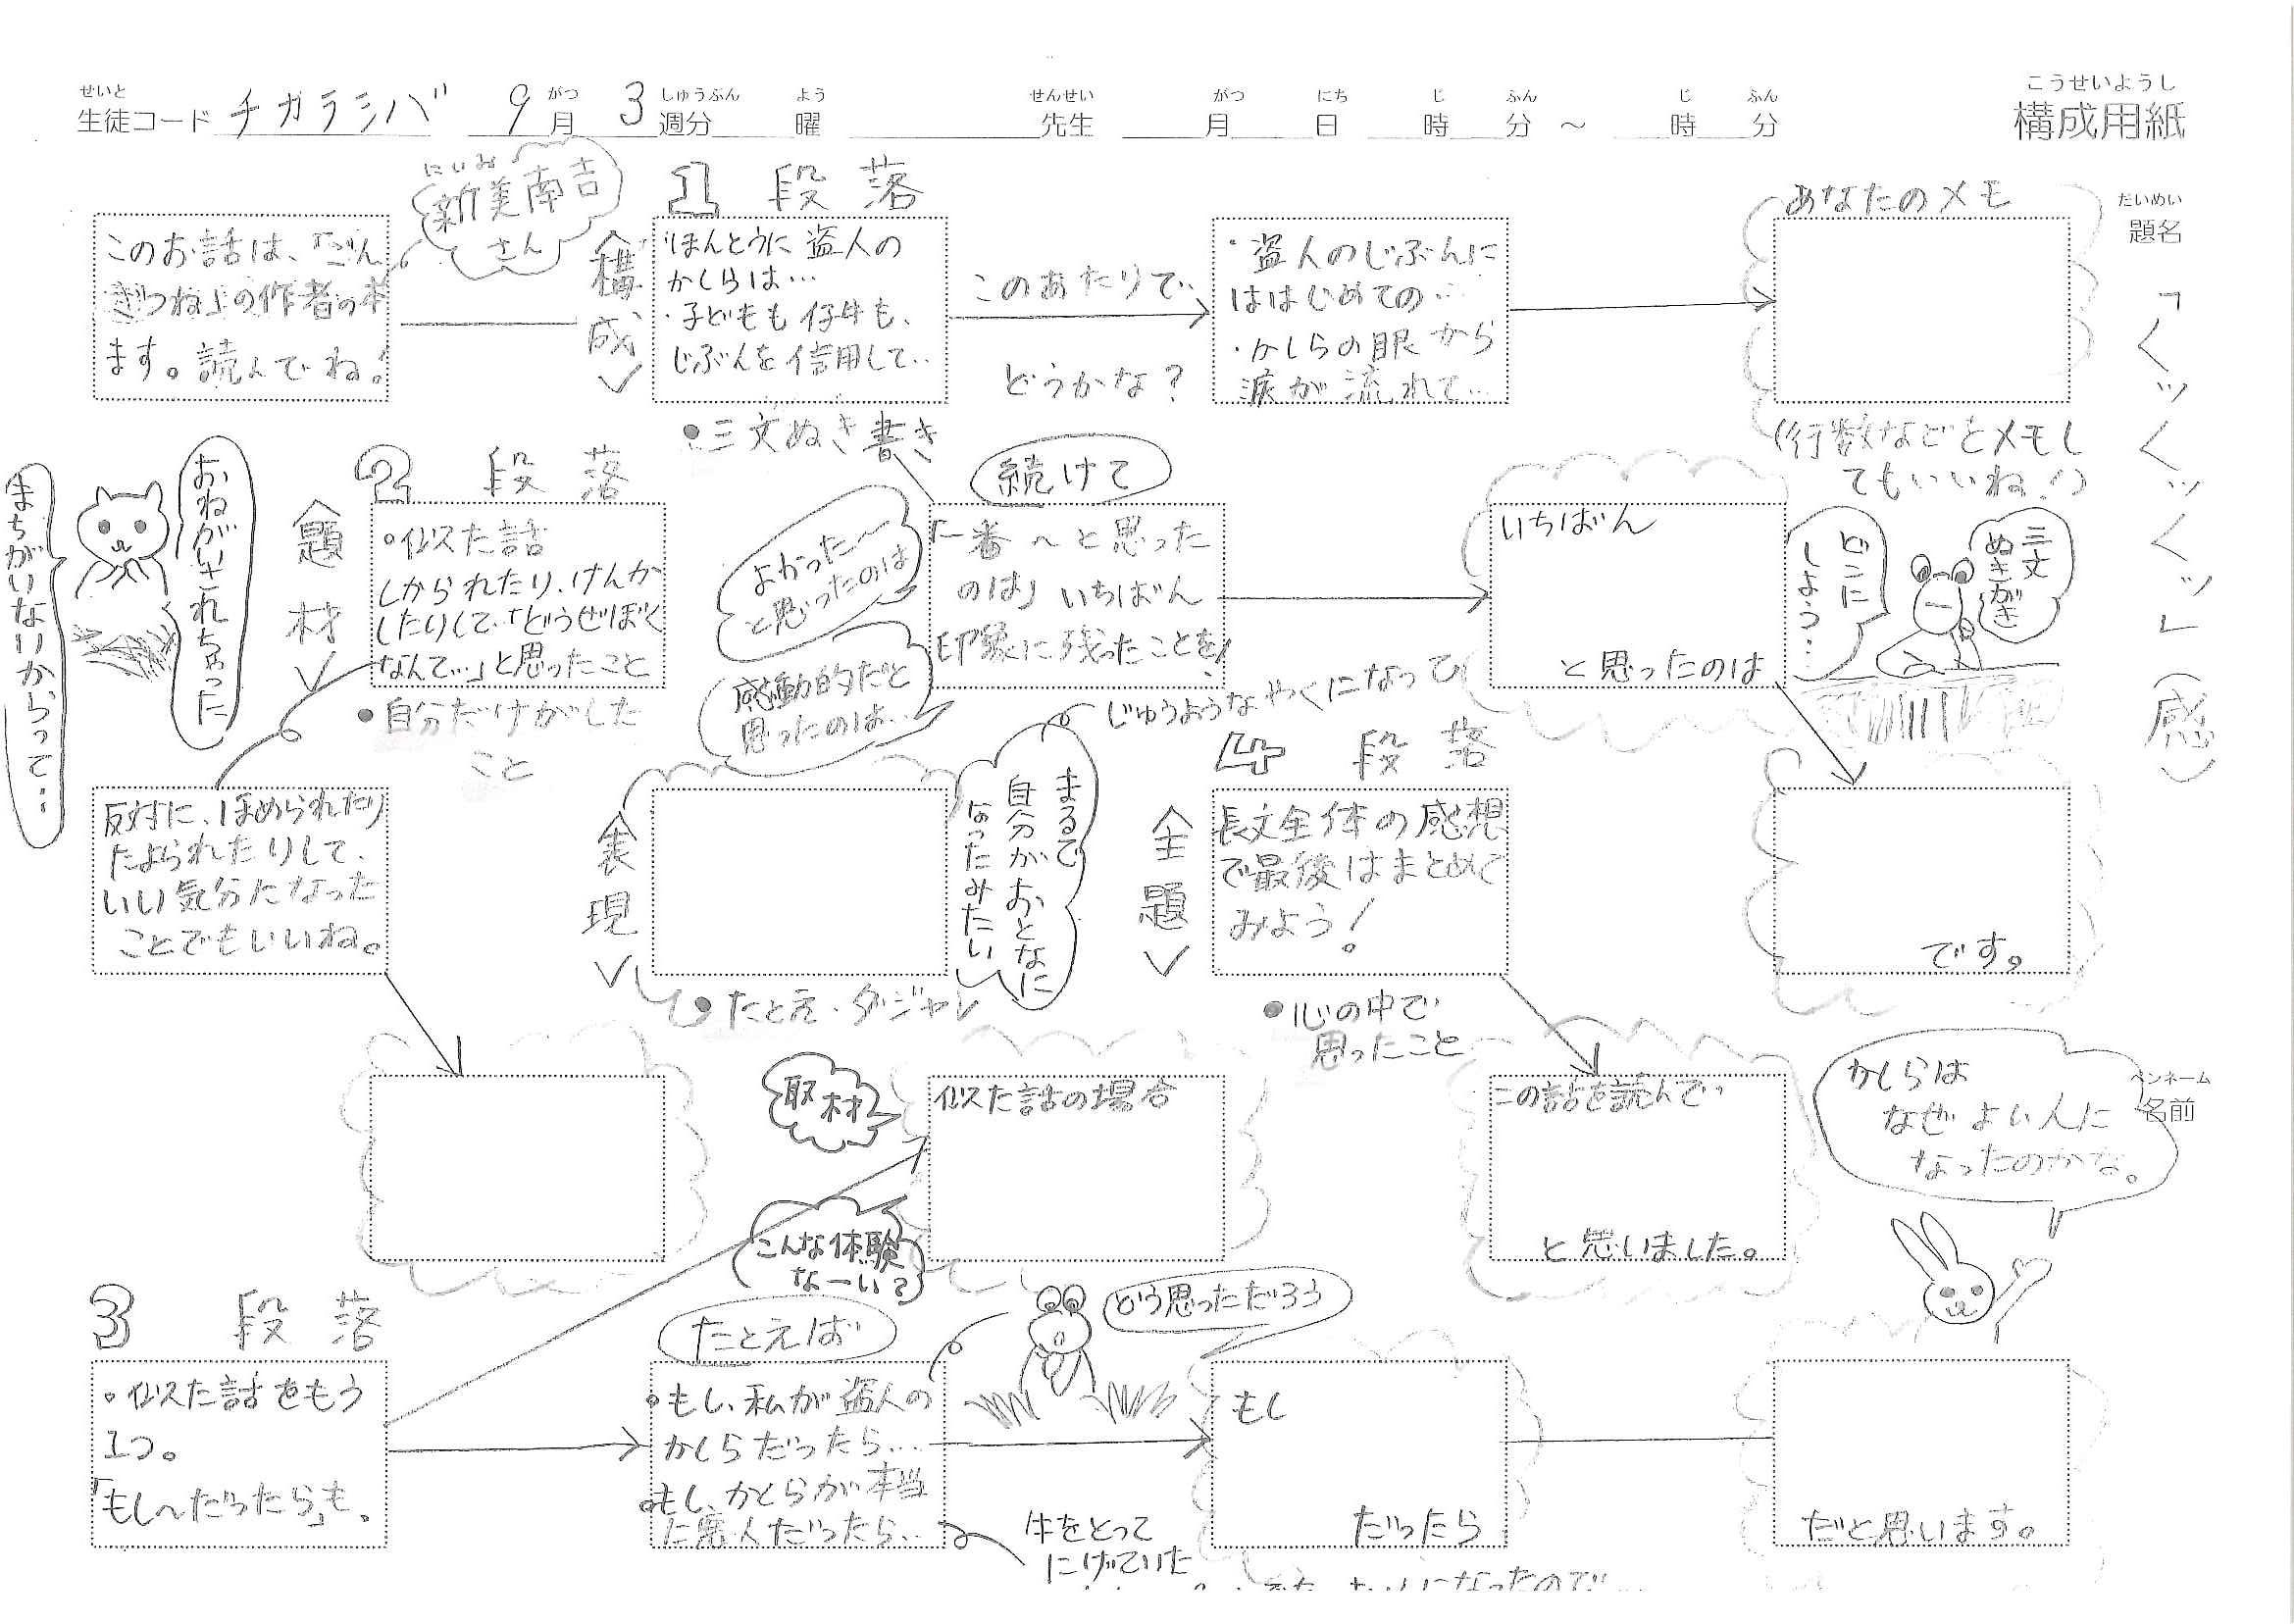 せいと がつ しゅうぶん よう せんせい がつ にち じ ふん じ ふん
生徒コード チカラシバ 9月 3週分 曜 先生 月 日 時 分 ～ 時 分
こうせいようし
構成用紙
だいめい
題名
「くッくッくッ」（感）
ペンネーム
名前
このお話は、「ごん
ぎつね」の作者の本
ます。読んでね！
にいみ
新美南吉
さん
1 段落
＜構成＞
ほんとうに盗人の
かしらは…
・子どもも仔牛も、
じぶんを信用して…
●三文ぬき書き
このあたりで…
どうかな？
・盗人のじぶんに
ははじめての…
・かしらの眼から
涙が流れて…
あなたのメモ
（行数などをメモし
てもいいね！）
三文
ぬきがき
どこに
しよう…
続けて
「一番～と思った
のは」いちばん
印象に残ったことを！
よかった～
と思ったのは
感動的だと
思ったのは…
いちばん
と思ったのは
です。
2 段落
＜題材＞
おねがいされちゃった
まちがいないからって…
○似た話
しかられたり、けんか
したりして、「どうせぼく
なんて…」と思ったこと
●自分だけがした
こと
反対に、ほめられたり
たよられたりして、
いい気分になった
ことでもいいね。
＜表現＞
●たとえ・ダジャレ
まるで
自分がおとなに
なったみたい
じゅうようなやくになって
4 段落
＜主題＞
長文全体の感想
で最後はまとめて
みよう！
●心の中で
思ったこと
この話を読んで…
と思いました。
かしらは
なぜよい人に
なったのかな。
3 段落
○似た話をもう
1つ。
「もし～だったら」も。
取材
似た話の場合
こんな体験
なーい？
たとえば
○もし、私が盗人の
かしらだったら…
○もし、かしらが本当
に悪人だったら…
どう思っただろう
牛をとって
にげていた
もし
だったら
だと思います。
になったので